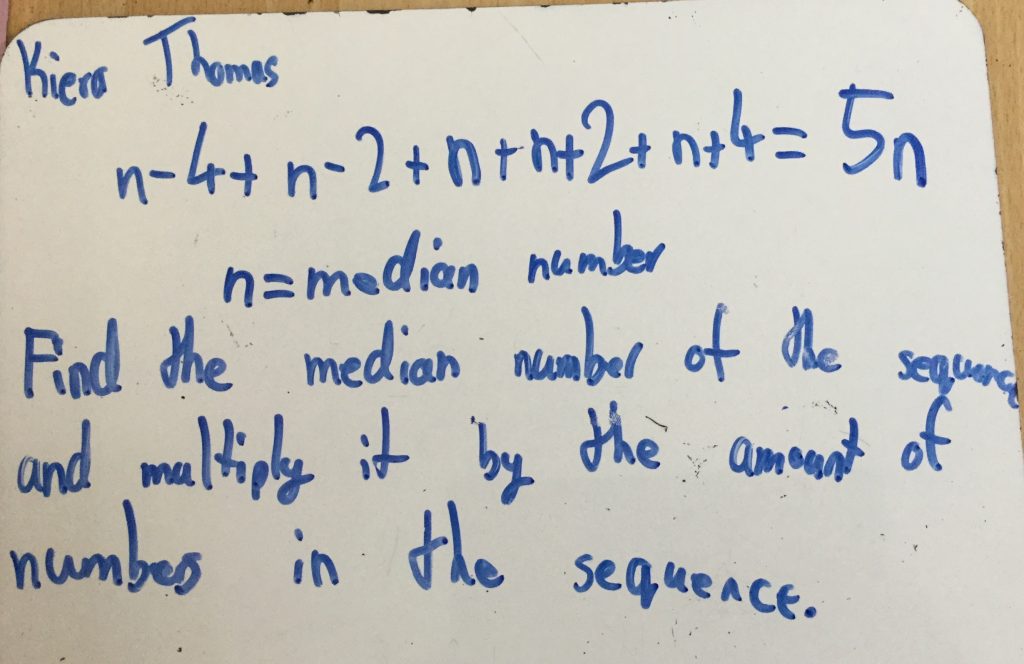 Kiera Thomas
n-4+ n-2+n+n+2+ n+4= 5n
n=median number
Find the median number of the sequenc
and multiply it by the amount of
numbers in the sequence.